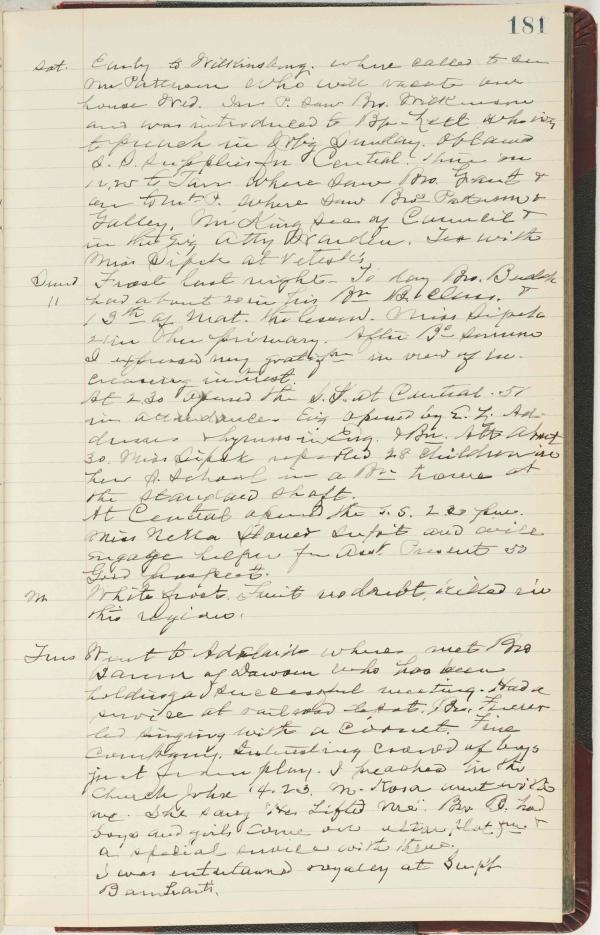 181
Sat. Early to Wilkinsburg. where called to see
Mr Patterson who will vacate our
house Wed. Jas P. saw Bro. Wilkinson
and was introduced to Bp. who is
to preach in Sunday. Obtained
S. S. supplies for Central. Thru on
12,25 to Tarr where saw Bro. Grant &
on to Mt P. where saw Bros Patterson &
Galley, Mr King Sec of Council &
in the Atty Braden. Tea with
Miss Sipek at
Sund Frost last night - To day Bro. Budek
11 had about 20 in his Bn B. Class. &
13th of Mat. the lesson. Miss Sipek
21 in the primary. After Bo sermon
I expressed my in view of in-
creasing interest.
At 2.30 opened the S.S. at Central. 51
in attendance. Eng opened by E. Z. Ad-
dresses & hymns in Eng. & Bn. Att about
30. Miss Sipek reported 28 children in
her S. School in a Bn home at
the Standard Shaft.
At Central opened the S.S. 2.30 p.m.
Miss Netta Stoner Supt and will
engage helper for Asst. Present 50
Good prospect.
M White frost. Fruit no doubt killed in
this region.
Tues Went to Adelaide where met Bro
Baum of Dawson who has been
holding a successful meeting. Had a
service at railroad Bro.
led singing with a cornet. Fine
company. Interesting crowd of boys
just from play. I preached in the
Church John 4.23. M. Rosa went with
me. She sang "He Lifted Me". Bro B. had
boys and girls come over &
a special service with them.
I was entertained royaley at Supt
Barnharts.